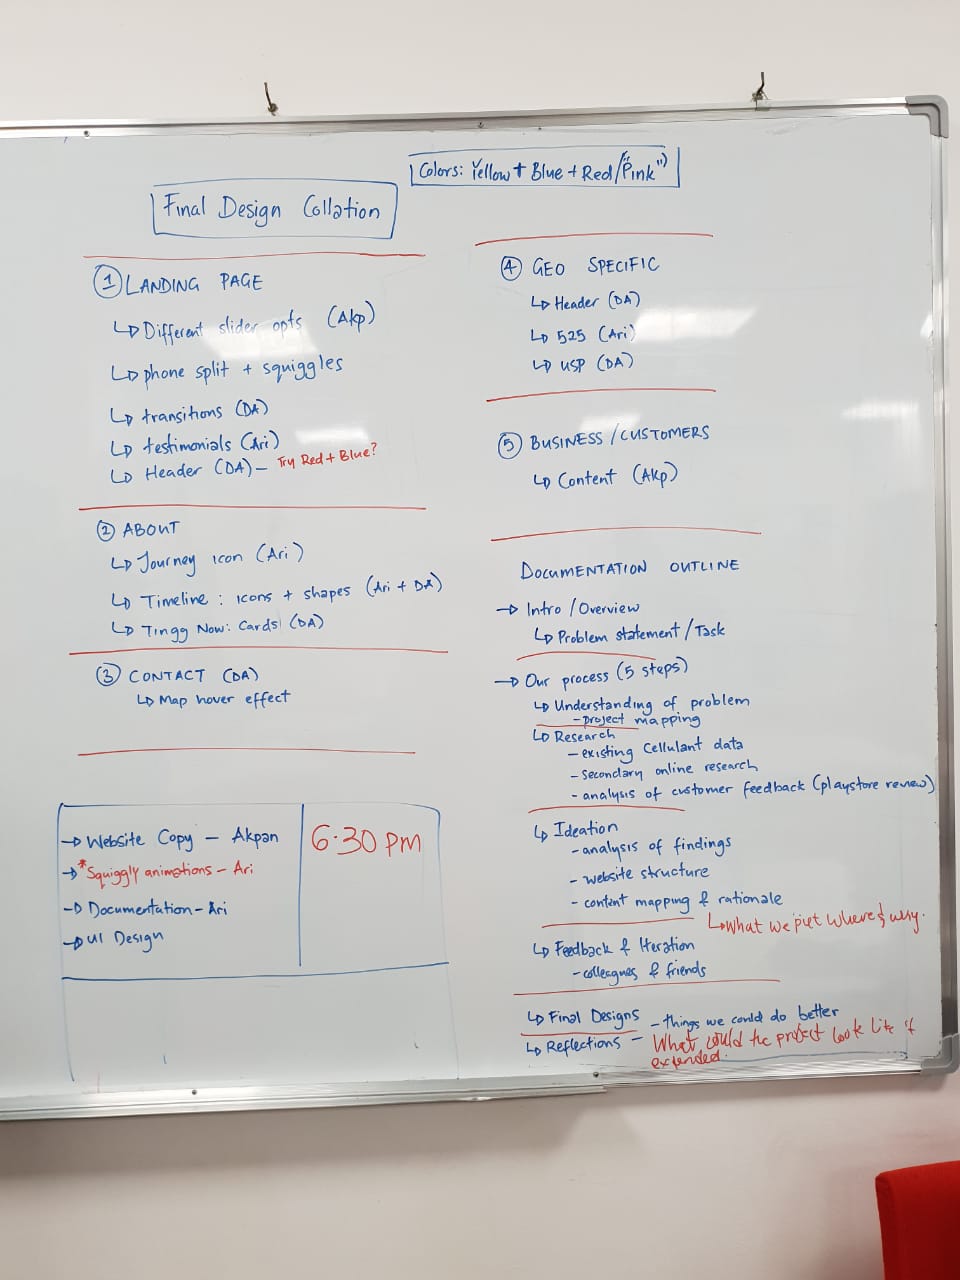 Colors: Yellow + Blue + Red/("Pink")
Final Design Collation
① LANDING PAGE
↳ Different slider opts (Akp)
↳ phone split + squiggles
↳ transitions (DA)
↳ testimonials (Ari)
↳ Header (DA) – Try Red + Blue?
② ABOUT
↳ Journey icon (Ari)
↳ Timeline: icons + shapes (Ari + DA)
↳ Tingg Now: Cards (DA)
③ CONTACT (DA)
↳ Map hover effect
→ Website Copy – Akpan
→ *Squiggly animations – Ari
→ Documentation – Ari
→ UI Design
6:30 PM
④ GEO SPECIFIC
↳ Header (DA)
↳ 525 (Ari)
↳ USP (DA)
⑤ BUSINESS/CUSTOMERS
↳ Content (Akp)
DOCUMENTATION OUTLINE
→ Intro/Overview
↳ Problem statement/Task
→ Our process (5 steps)
↳ Understanding of problem
- project mapping
↳ Research
- existing Cellulant data
- secondary online research
- analysis of customer feedback (playstore review)
↳ Ideation
- analysis of findings
- website structure
- content mapping & rationale
↳ What we put where & why.
↳ Feedback & Iteration
- colleagues & friends
↳ Final Designs
↳ Reflections – things we could do better
– What would the project look like if
expended.